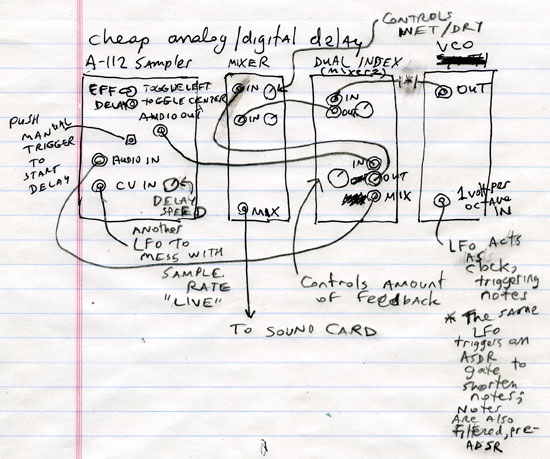 cheap analog/digital delay
CONTROLS
WET/DRY
A-112 Sampler
MIXER
DUAL INDEX
(Mixer2)
VCO
EFF
TOGGLE LEFT
DELAY
TOGGLE CENTER
AUDIO OUT
IN
IN
IN
OUT
*
OUT
PUSH
MANUAL
TRIGGER
TO
START
DELAY
AUDIO IN
CV IN
DELAY
SPEED
IN
OUT
MIX
MIX
1 volt per
octave
IN
ANOTHER
LFO TO
MESS WITH
SAMPLE
RATE
"LIVE"
Controls Amount
of feedback
TO SOUND CARD
LFO Acts
AS
clock,
triggering
notes
* The same
LFO
triggers an
ASDR
gate to
shorten
notes;
Notes
ARE Also
filtered, pre-
ADSR